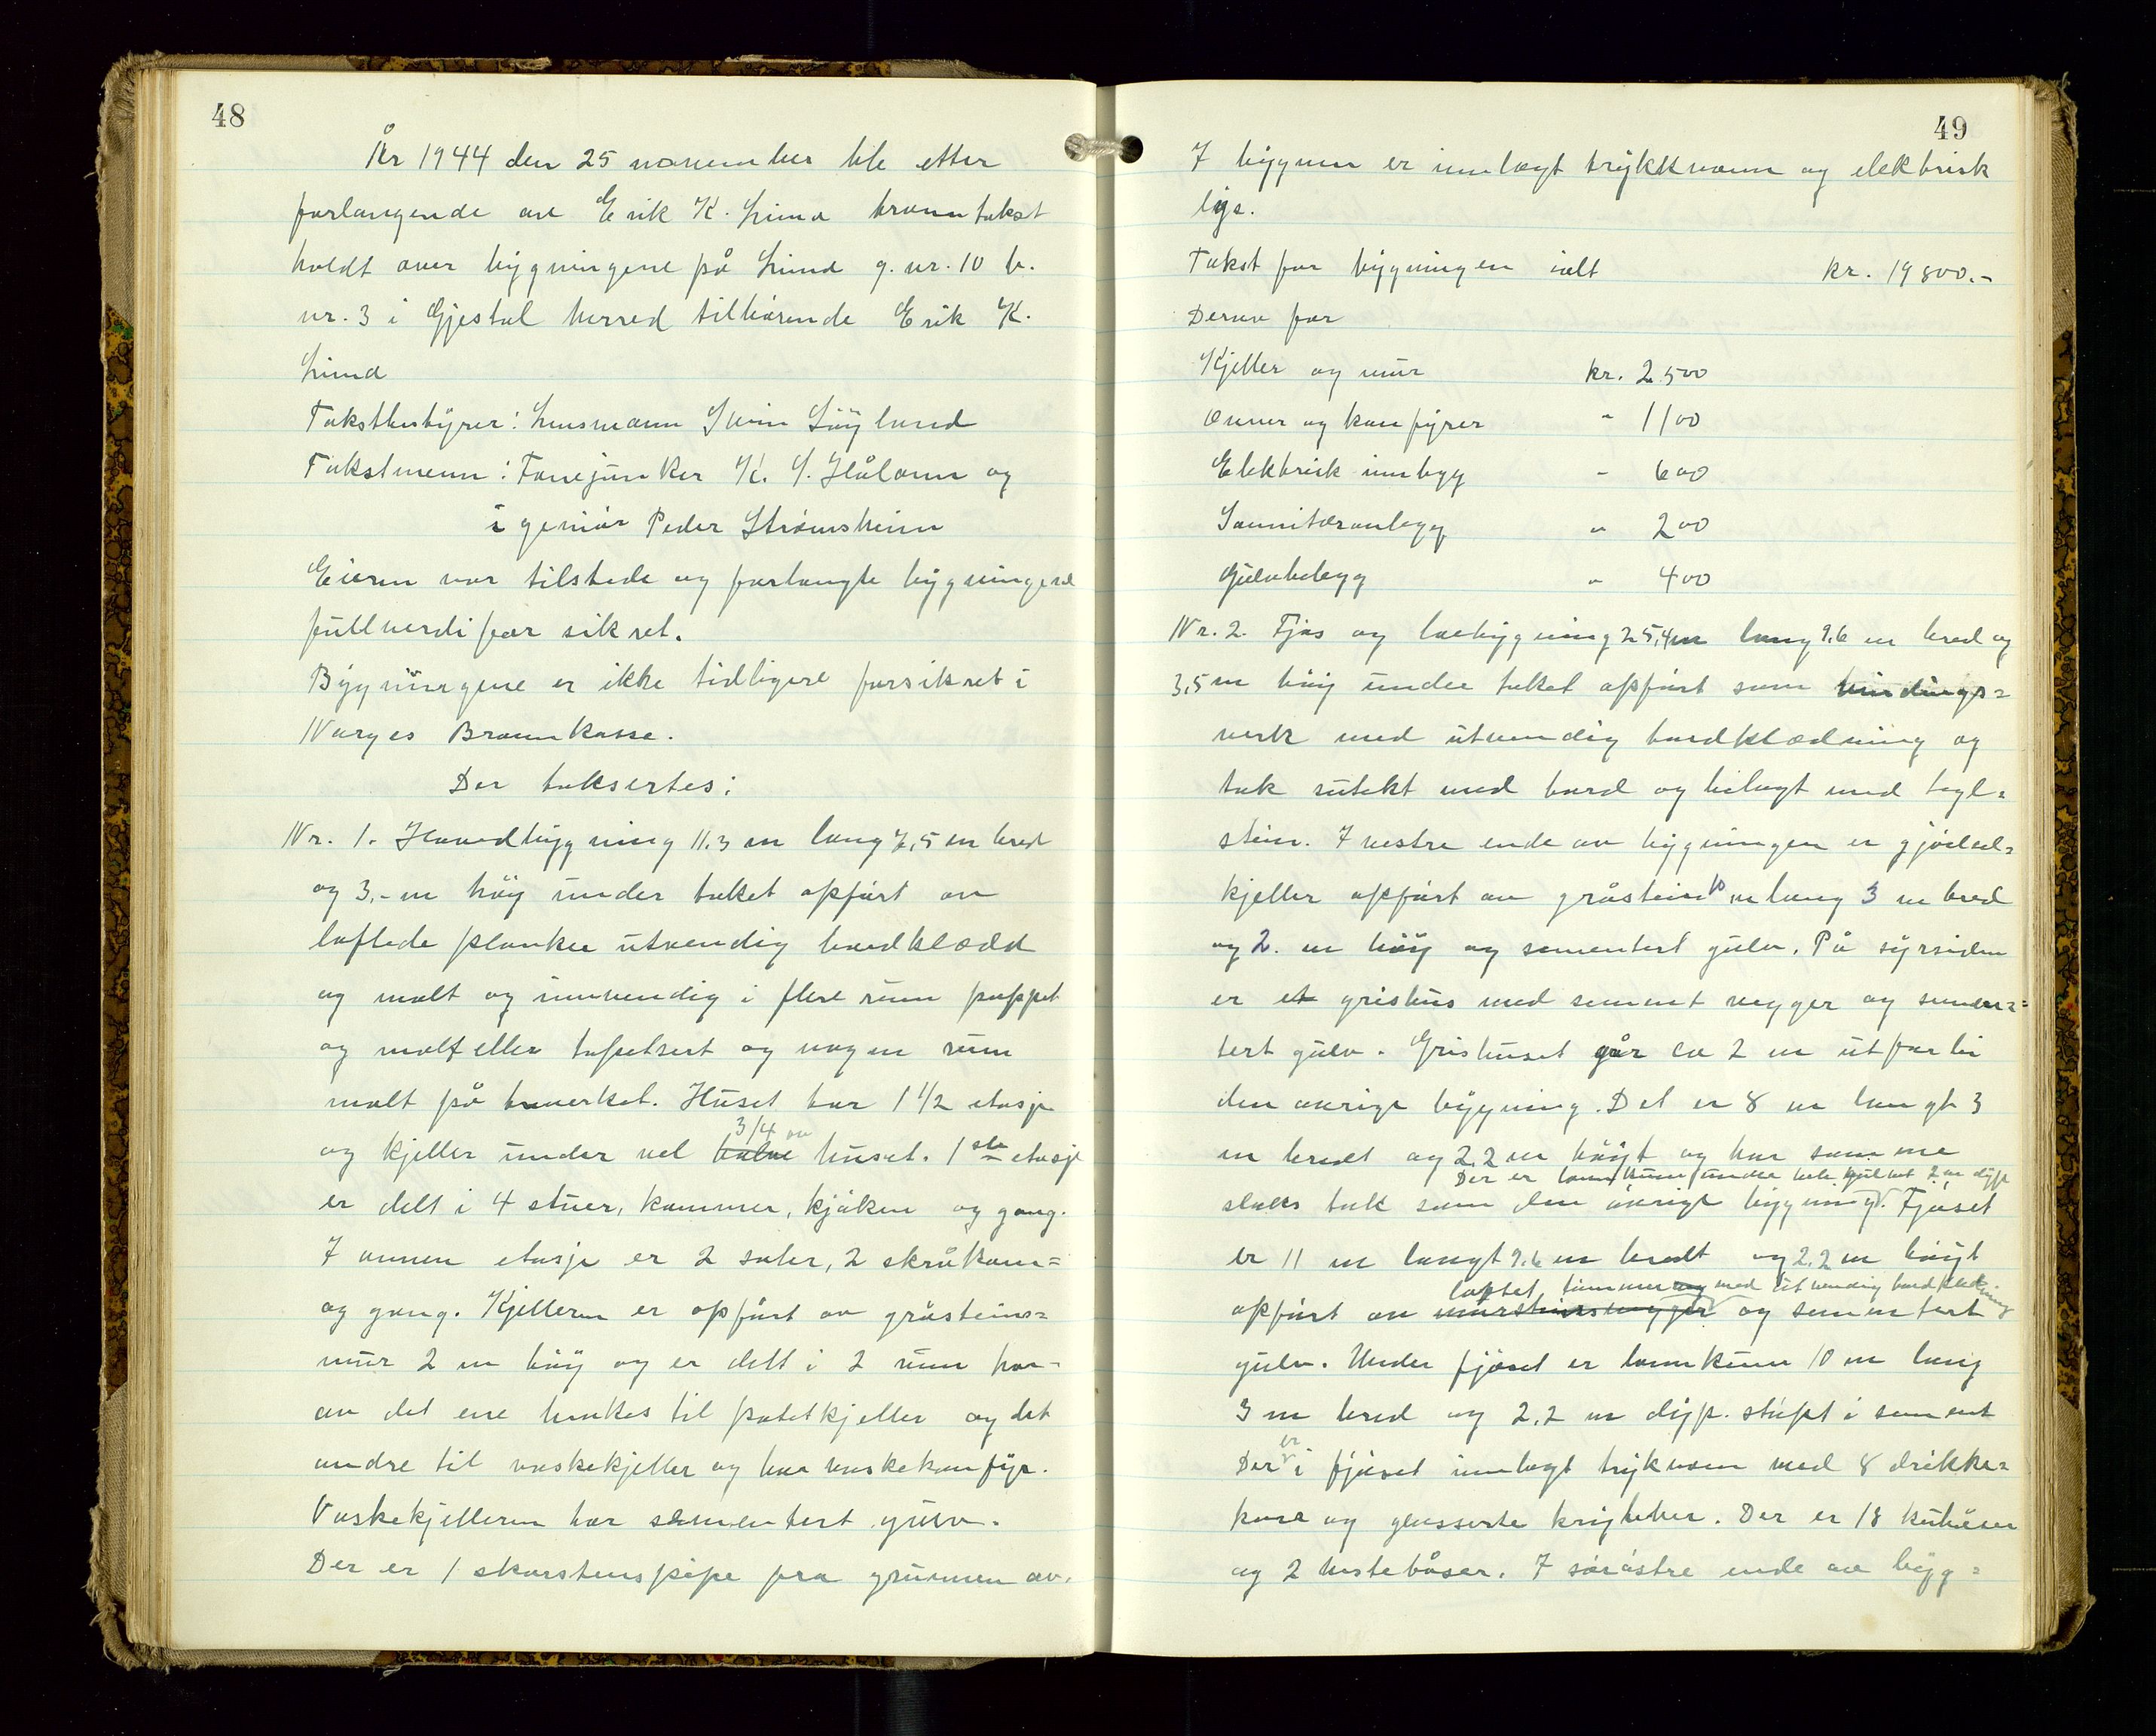 48
År 1944 den 25 november ble etter
forlangende av Erik K. Limd branntakst
holdt over bygningene på Limd g.nr. 10 b.
nr. 3 i Gjestal herred tilhørende Erik K.
Limd
Takstbestyrer: Lensmann Svein Løyland
Takstmenn: Fanejunker K. S. Håland og
igeniør Peder Strømsheim
Eieren var tilstede og forlangte bygningene
fullverdi for sikret.
Bygningene er ikke tidligere forsikret i
Norges Brannkasse.
Der taksertes:
Nr. 1. Hovedbygning 11.3 m lang 7,5 m bred
og 3,- m høy under taket opført av
laftede planker utvendig bordklædd
og malt og innvendig i flere rum pappet
og malt eller tapetsert og nogen rum
malt på treverket. Huset har 1 1/2 etasje
3/4 av
og kjeller under vel halve huset. 1ste etasje
er delt i 4 stuer, kammer, kjøken og gang.
I annen etasje er 2 saler, 2 skråkam=
og gang. Kjelleren er opført av gråsteins=
mur 2 m høy og er delt i 2 rum hor-
av det ene brukes til potetkjeller og det
andre til vaskekjeller og har vaskekomfyr.
Vaskekjelleren har sementert gulv.
Der er 1 skorstenspipe fra grunnen av.
49
I bygnen er innlagt trykkvann og elektrisk
lys.
Takst for bygningen ialt kr. 19800.-
Derav for
Kjeller og mur kr. 2500
Ovner og komfyrer " 1100
Elektrisk innlegg " 600
Sannitæranlegg " 200
Gulvbelegg " 400
Nr. 2. Fjøs og løebygning 25,4 m lang 9,6 m bred og
3,5 m høy under taket opført som bindings=
verk med utvendig bordklædning og
tak sutekt med bord og belagt med tegl=
stein. I vestre ende av bygningen er gjødsel=
kjeller opført av gråstein 10 m lang 3 m bred
og 2. m høy og sementert gulv. På syrsiden
er et grishus med sement vegger og semen=
tert gulv. Grishuset går ca 2 m utforbi
den øvrige bygning. Det er 8 m langt 3
m bredt og 2,2 m høgt og har samme
Der er lannkum under hele gulvet 2 m dyp
slaks tak som den øvrige bygning. Fjøset
er 11 m langt 9.6 m bredt og 2,2 m høgt
laftet tømmer og med utvendig bordklædning
opført av murstensvegger og sementert
gulv. Under fjøset er lannkum 10 m lang
3 m bred og 2,2 m dyp. støpt i sement
er
Der i fjøset innlagt trykvann med 8 drikke=
kar og glasserte krybber. Der er 18 kubåser
og 2 hestebåser. I sørøstre ende av bygg=